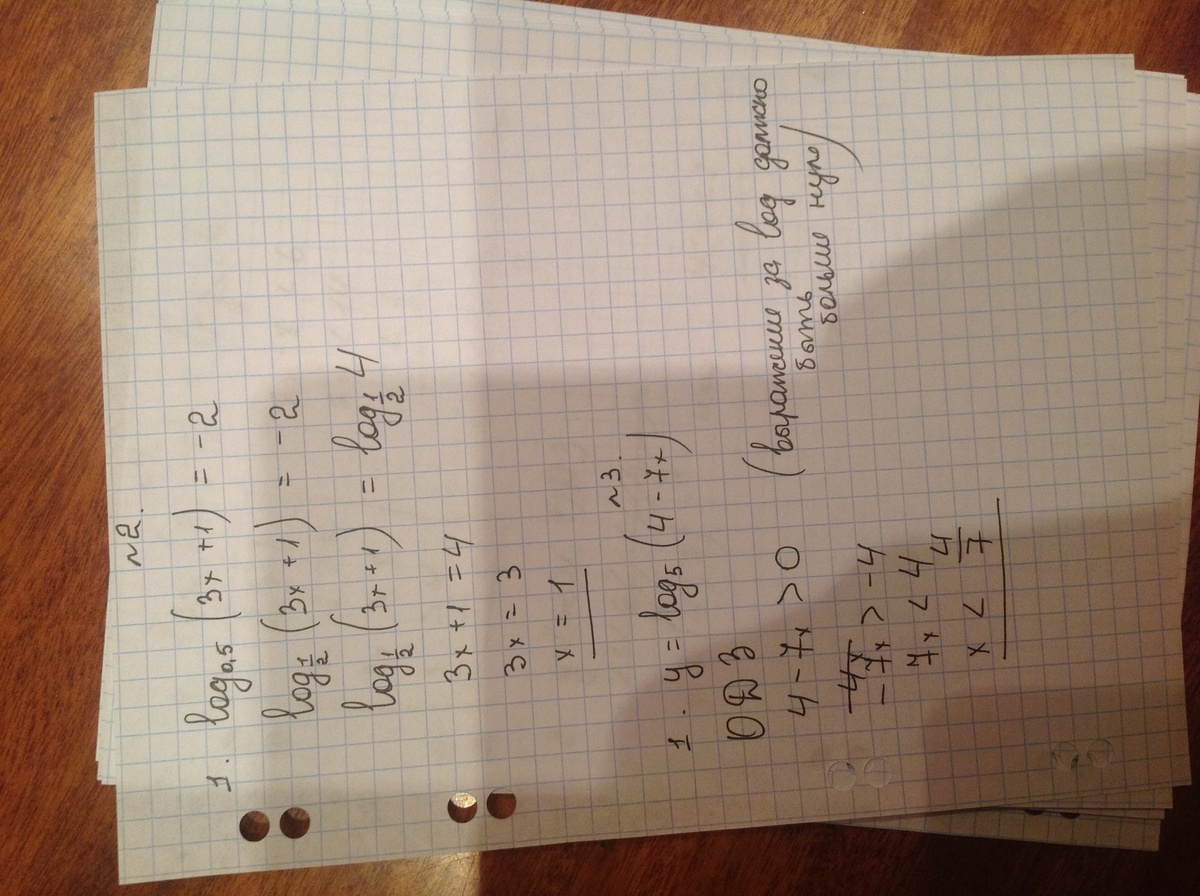 №2.
1. log₀,₅ (3x+1) = -2
log½ (3x+1) = -2
log½ (3x+1) = log½ 4
3x+1=4
3x=3
x=1
№3.
1. y = log₅ (4-7x)
ОДЗ
4-7x > 0 (выражение за log должно
быть
больше нуля)
-7x > -4
7x < 4
x < 4/7